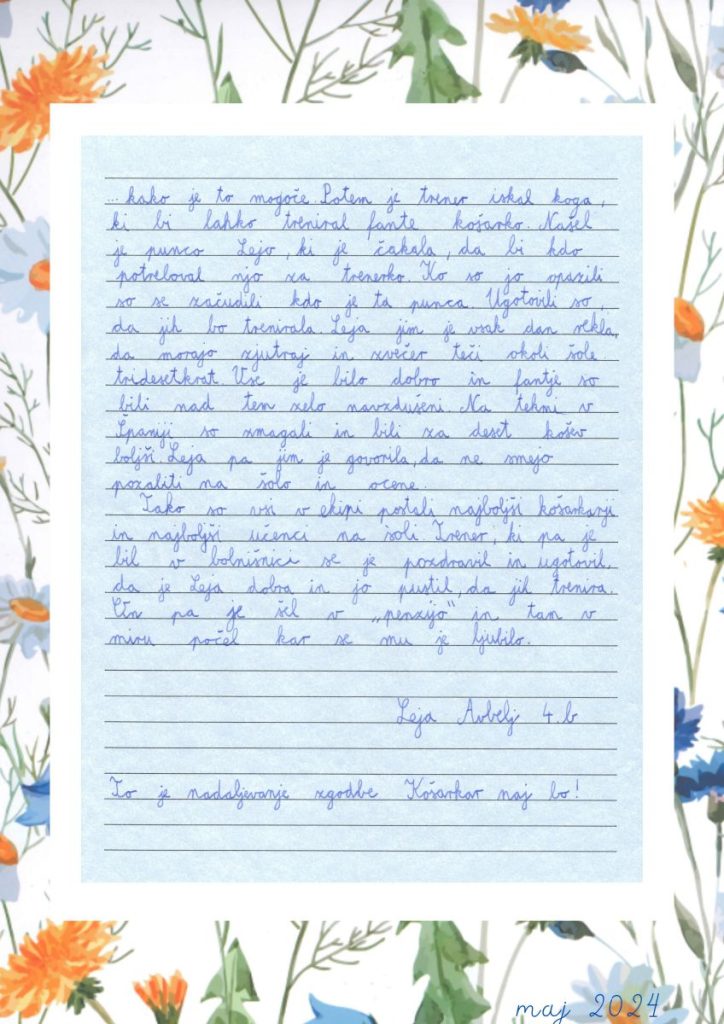 ... kako je to mogoče. Potem je trener iskal koga,
ki bi lahko treniral fante košarko. Našel
je punco Lejo, ki je čakala, da bi kdo
potreboval njo za trenerko. Ko so jo opazili
so se začudili kdo je ta punca. Ugotovili so,
da jih bo trenirala. Leja jim je vsak dan rekla,
da morajo zjutraj in zvečer teči okoli šole
tridesetkrat. Vse je bilo dobro in fantje so
bili nad tem zelo navzdušeni. Na tekmi v
Španiji so zmagali in bili za deset košev
boljši. Leja pa jim je govorila, da ne smejo
pozabiti na šolo in ocene.
Tako so vsi v ekipi postali najboljši košarkarji
in najboljši učenci na šoli. Trener, ki pa je
bil v bolnišnici se je pozdravil in ugotovil,
da je Leja dobra in jo pustil, da jih trenira.
On pa je šel v „penzijo" in tam v
miru počel kar se mu je ljubilo.
Leja Avbelj 4. b
To je nadaljevanje zgodbe Košarkar naj bo!
maj 2024